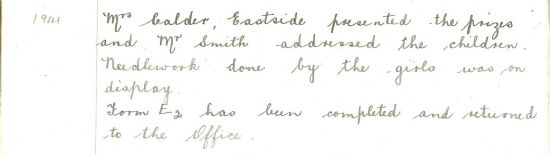 1941 Mrs Calder, Eastside presented the prizes
and Mr Smith addressed the children.
Needlework done by the girls was on
display.
Form E2 has been completed and returned
to the Office.